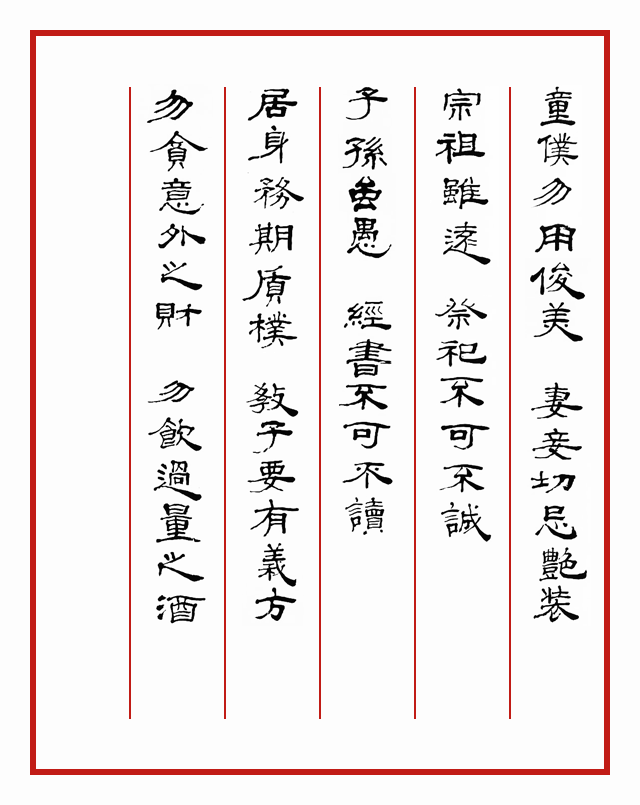 童僕勿用俊美 妻妾切忌艷装
宗祖雖遠 祭祀不可不誠
子孫虽愚 經書不可不讀
居身務期质樸 教子要有義方
勿貪意外之財 勿飲過量之酒